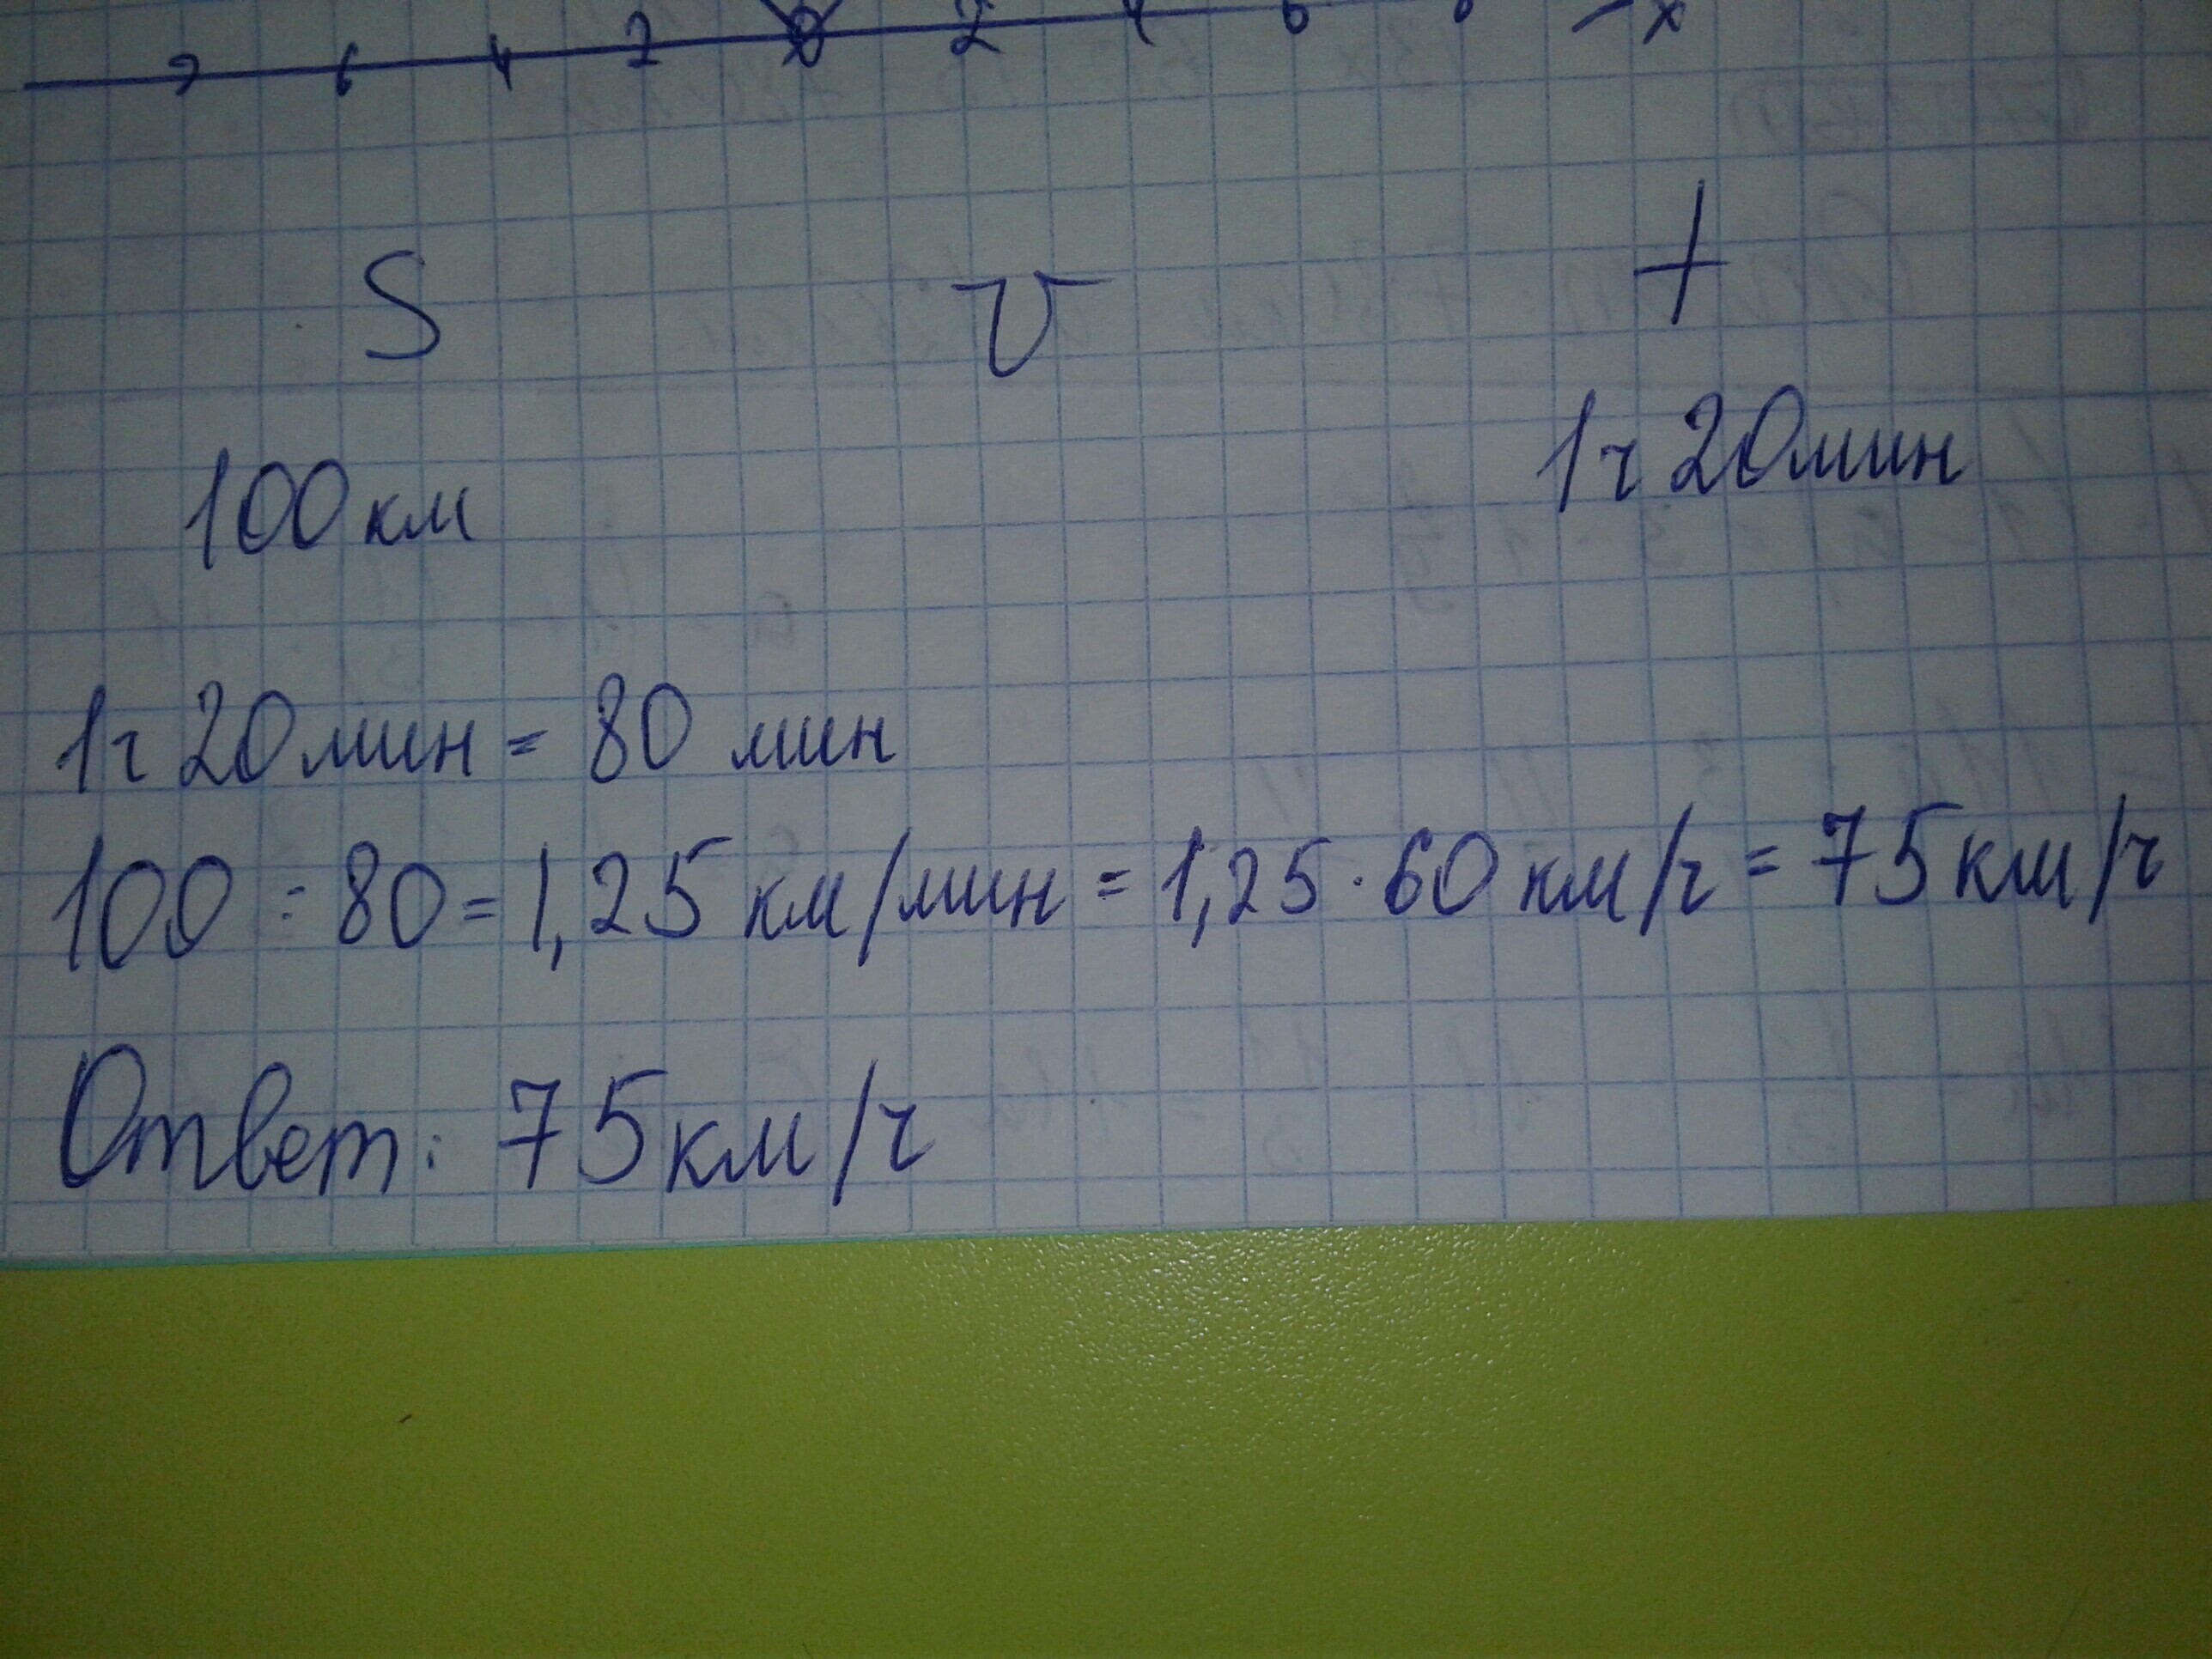 6 4 2 0 2
S v t
100км 1ч 20мин
1ч 20мин = 80 мин
100 : 80 = 1,25 км/мин = 1,25 · 60 км/ч = 75 км/ч
Ответ: 75 км/ч